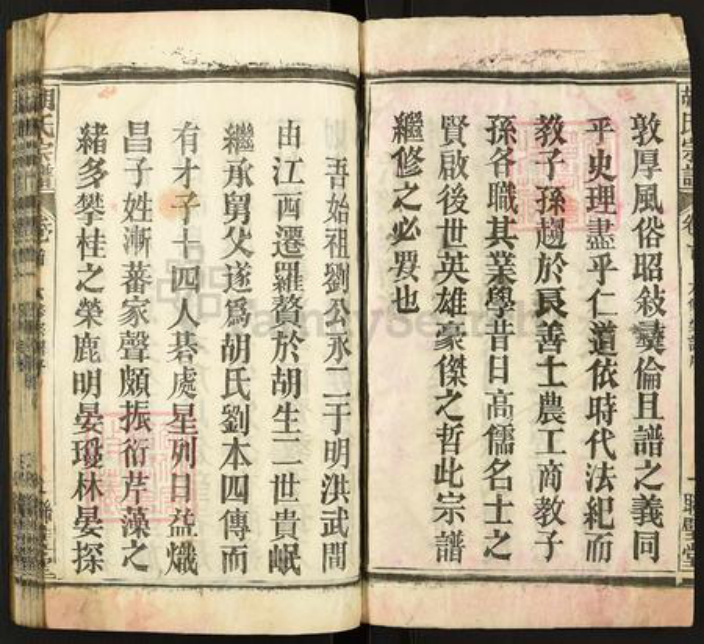 敦厚風俗昭敍彛倫且譜之義同
乎史理盡乎仁道依時代法紀而
教子孫趨於良善士農工商教子
孫各職其業學昔日高儒名士之
賢啟後世英雄豪傑之哲此宗譜
繼修之必要也
胡氏宗譜
卷首
聯璧堂
吾始祖劉公永二于明洪武間
由江西遷羅贅於胡生二世貴岷
繼承舅父遂爲胡氏劉本四傳而
有才子十四人碁處星列日益熾
昌子姓漸蕃家聲頗振衍芹藻之
緒多攀桂之榮鹿明晏瓊林晏探
胡氏宗譜
卷首
FamilySearch